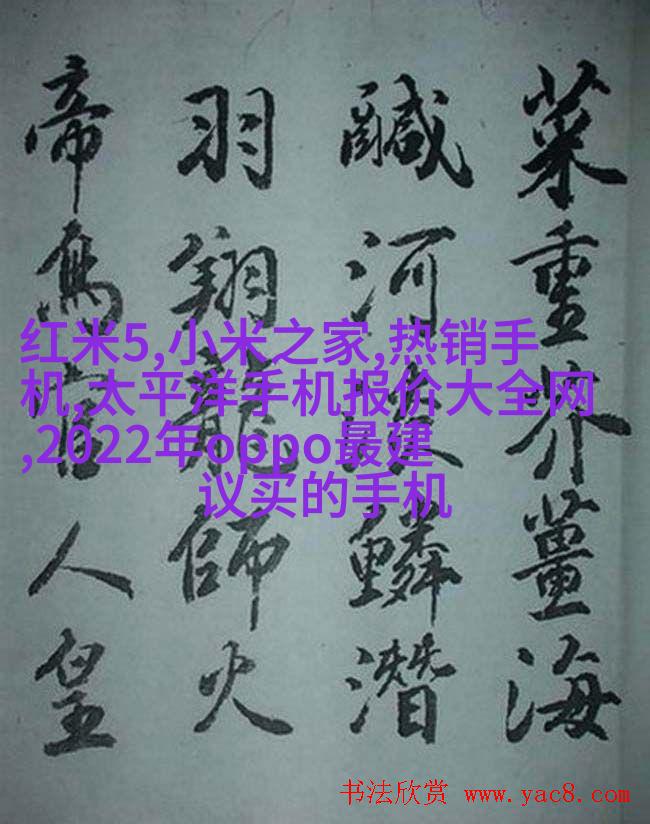 菜重芥薑海
鹹河淡鱗潛
羽翔龍師火
帝鳥官人皇
红米5,小米之家,热销手
机,太平洋手机报价大全网
,2022年oppo最建
议买的手机
书法欣赏 www.yac8.com